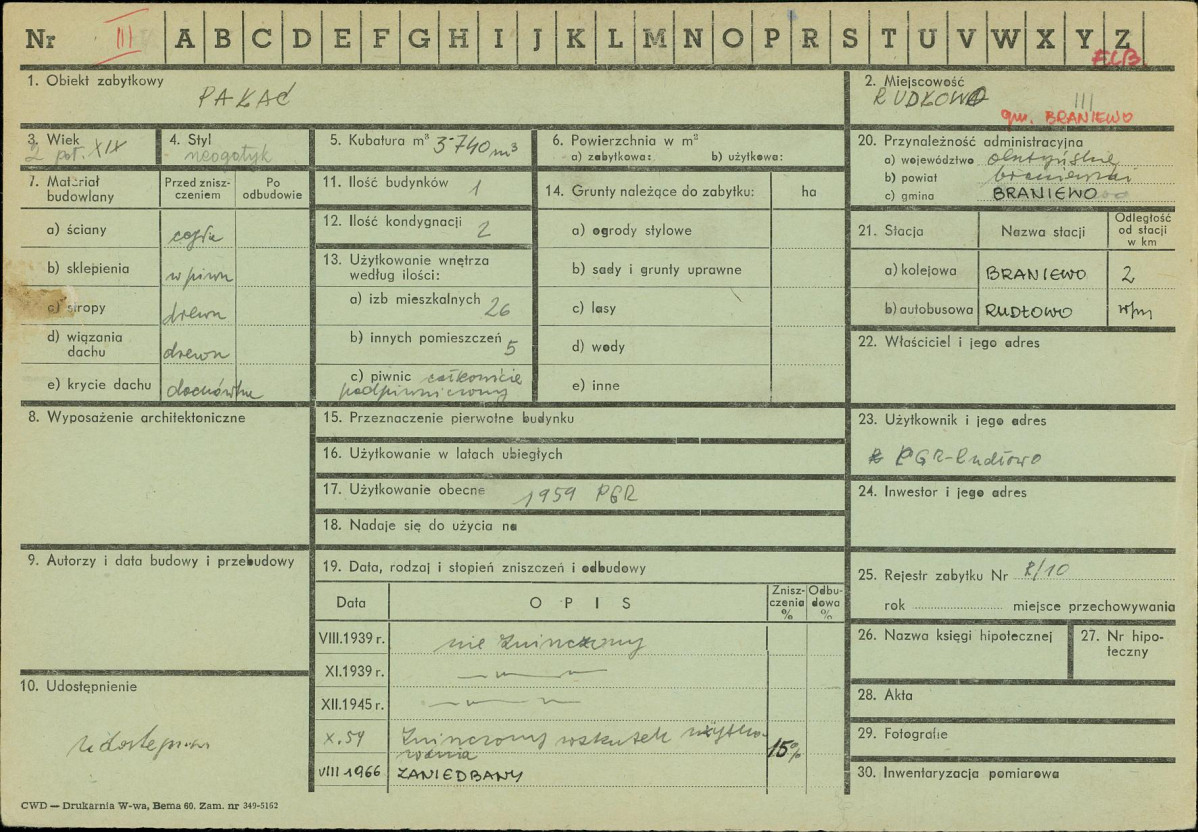 Nr III A B C D E F G H I J K L M N O P R S T U V W X Y Z
ELB
1. Obiekt zabytkowy
PAŁAC
2. Miejscowość
RUDŁOWO
III
gm. BRANIEWO
3. Wiek
2 poł. XIX
4. Styl
neogotyk
5. Kubatura m³ 3740 m³
6. Powierzchnia w m²
a) zabytkowa: b) użytkowa:
20. Przynależność administracyjna
a) województwo olsztyńskie
b) powiat braniewski
c) gmina BRANIEWO
7. Materiał budowlany
Przed zniszczeniem
Po odbudowie
a) ściany cegła
b) sklepienia w piwn
c) stropy drewn
d) wiązania dachu drewn
e) krycie dachu dachówka
11. Ilość budynków 1
12. Ilość kondygnacji 2
13. Użytkowanie wnętrza według ilości:
a) izb mieszkalnych 26
b) innych pomieszczeń 5
c) piwnic całkowicie
podpiwniczony
14. Grunty należące do zabytku: ha
a) ogrody stylowe
b) sady i grunty uprawne
c) lasy
d) wody
e) inne
21. Stacja
Nazwa stacji
Odległość od stacji w km
a) kolejowa BRANIEWO 2
b) autobusowa RUDŁOWO w/m
22. Właściciel i jego adres
8. Wyposażenie architektoniczne
15. Przeznaczenie pierwotne budynku
16. Użytkowanie w latach ubiegłych
17. Użytkowanie obecne 1959 PGR
18. Nadaje się do użycia na
23. Użytkownik i jego adres
PGR-Rudłowo
24. Inwestor i jego adres
9. Autorzy i data budowy i przebudowy
19. Data, rodzaj i stopień zniszczeń i odbudowy
Data
OPIS
Zniszczenia %
Odbudowa %
VIII.1939 r. nie zniszczony
XI.1939 r. — " —
XII.1945 r. — " —
X.59 Zniszczony wskutek użytko-
wania
15%
VIII 1966 ZANIEDBANY
25. Rejestr zabytku Nr 8/10
rok miejsce przechowywania
26. Nazwa księgi hipotecznej
27. Nr hipoteczny
28. Akta
29. Fotografie
30. Inwentaryzacja pomiarowa
10. Udostępnienie
CWD — Drukarnia W-wa, Bema 60. Zam. nr 349-5162